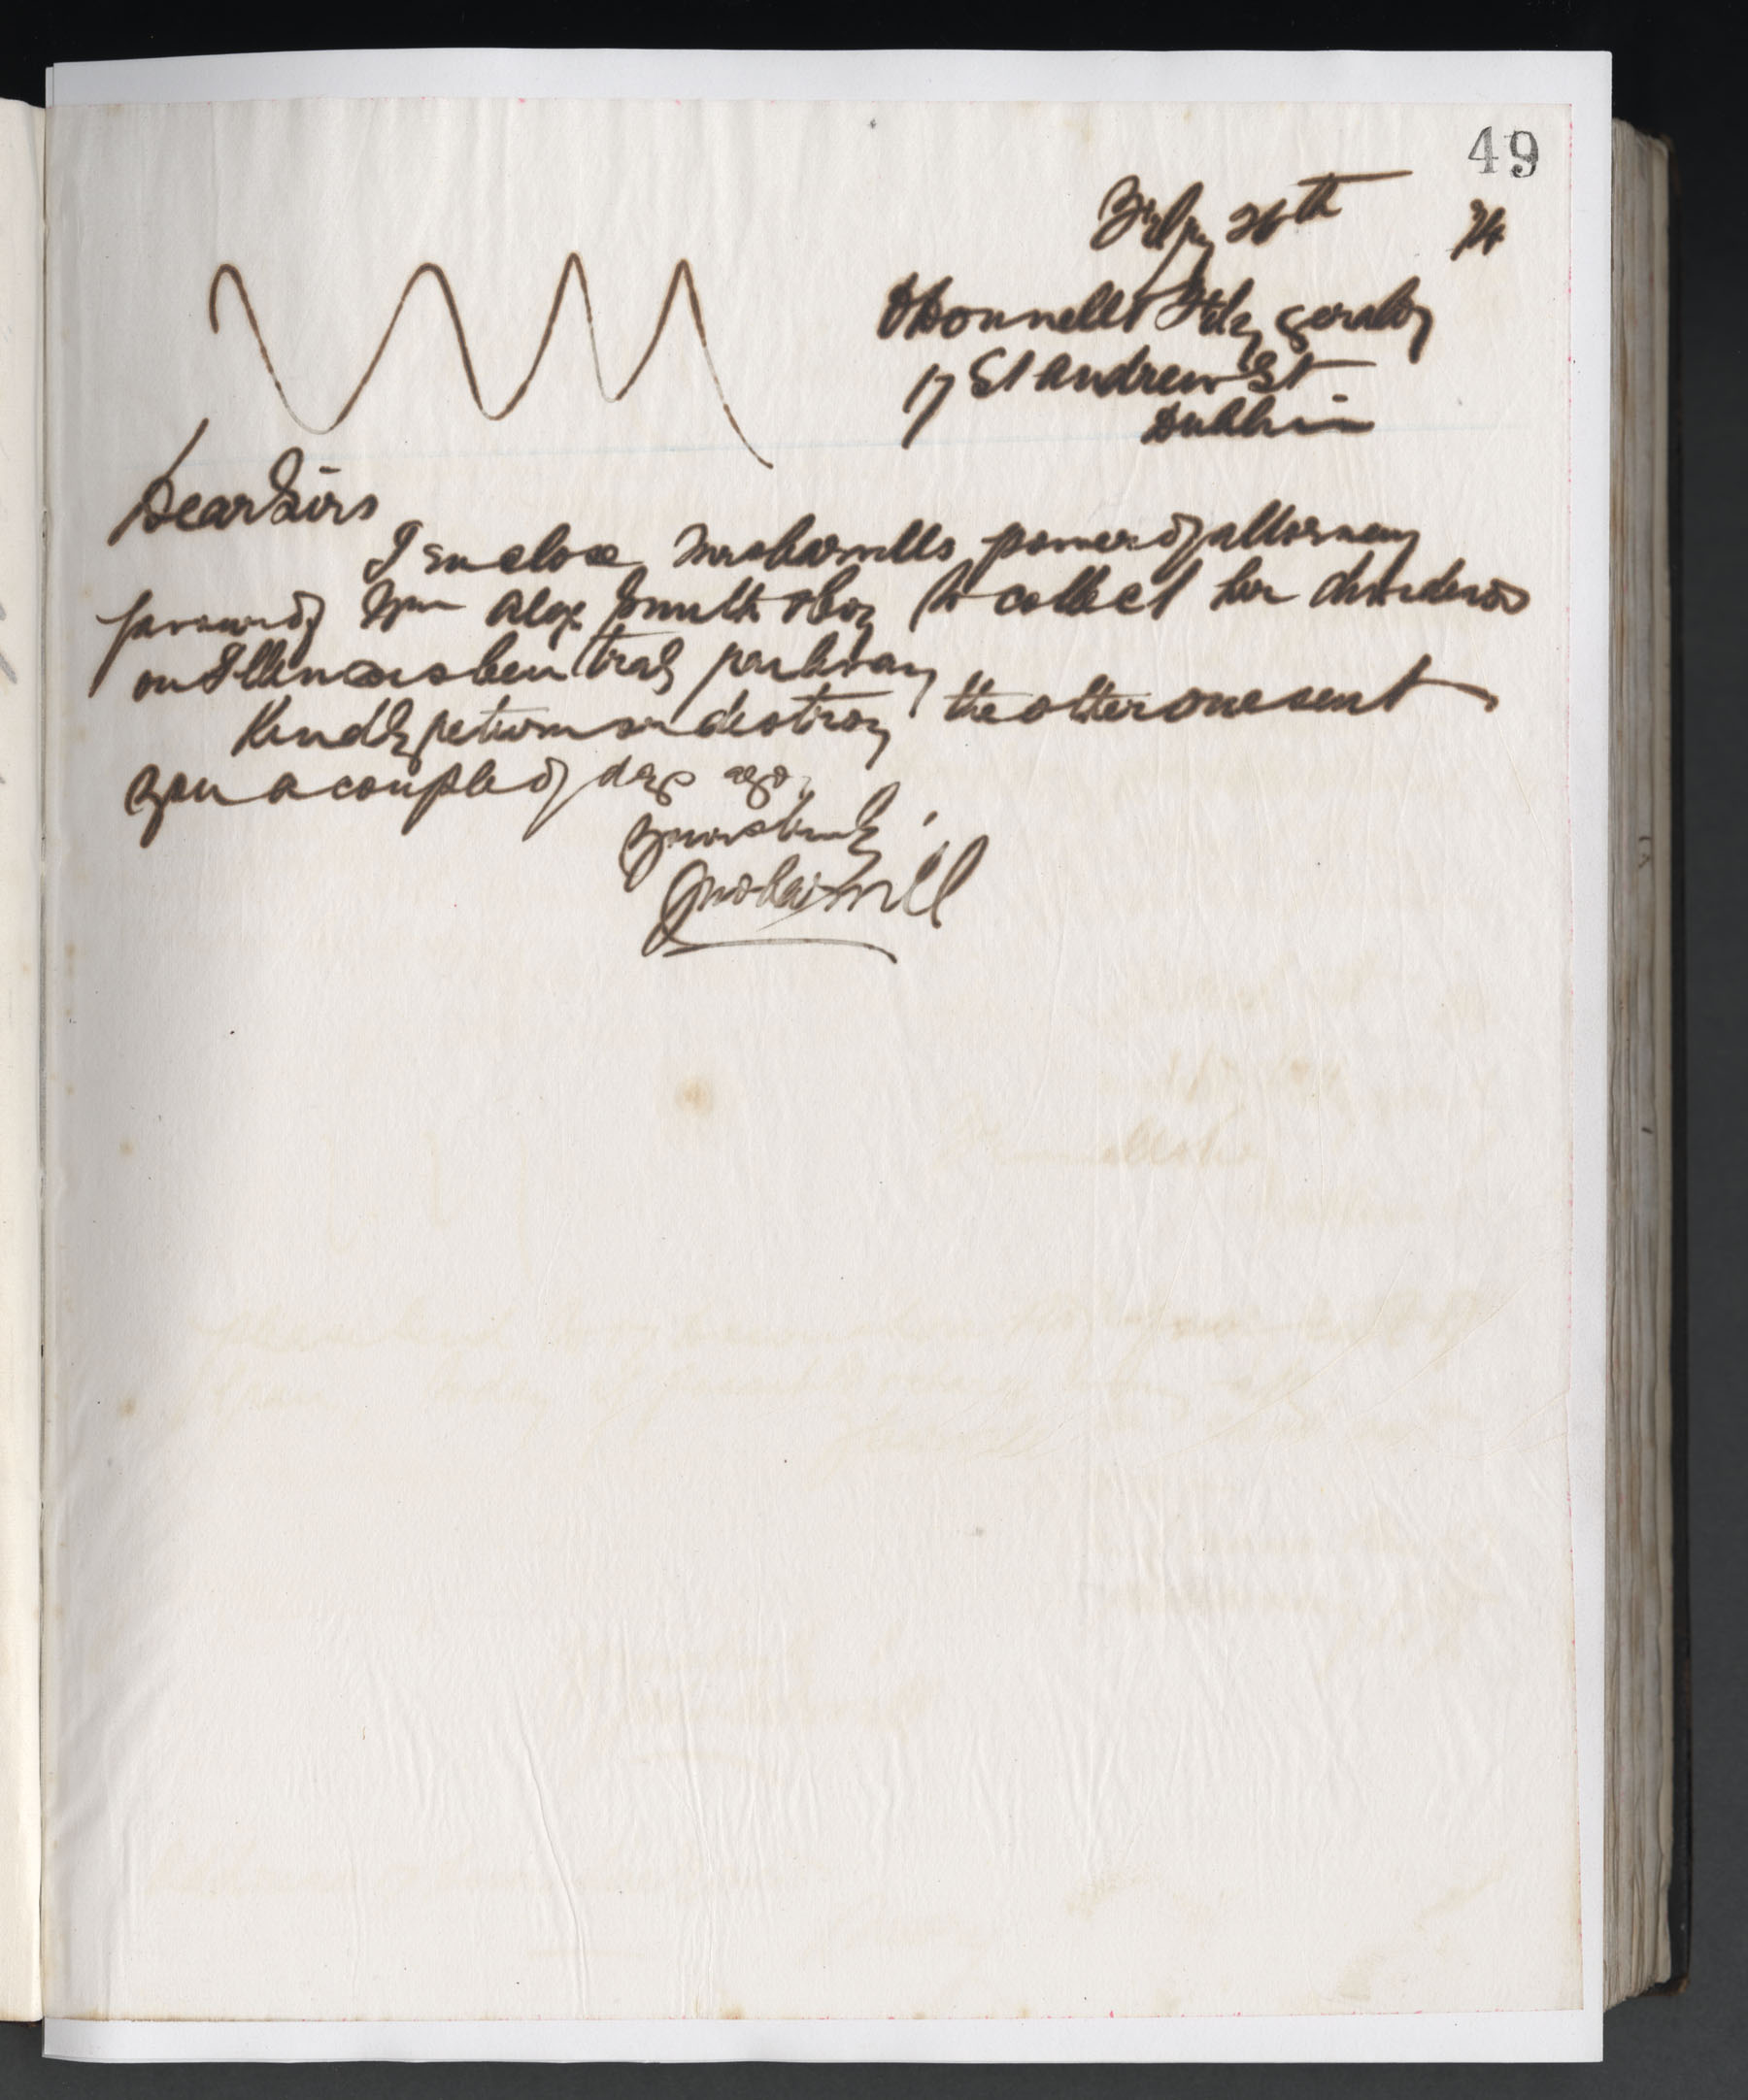 49
Feby 26th 94
O'Donnell & Fitz Gerald
17 St Andrew St
Dublin
Dear Sirs
I enclose Mrs Carvills power of attorney
favour of Wm Alex Smith & Coy to collect her dividends
on Illinois Central railway
Kindly return or destroy the other one sent
you a couple of days ago.
Yours truly
Jno Carvill